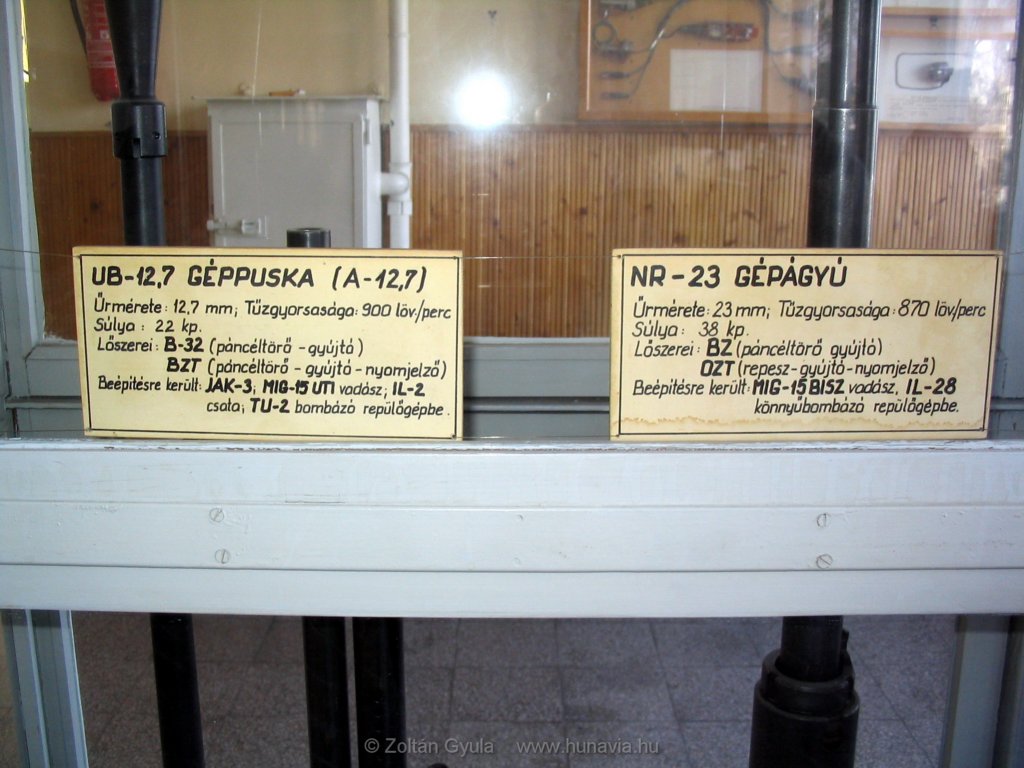 UB-12,7 GÉPPUSKA (A-12,7)
Űrmérete: 12,7 mm; Tűzgyorsasága: 900 löv/perc
Súlya: 22 kp.
Lőszerei: B-32 (páncéltörő-gyújtó)
BZT (páncéltörő-gyújtó-nyomjelző)
Beépítésre került: JAK-3; MIG-15 UTI vadász; IL-2
csata; TU-2 bombázó repülőgépbe.
NR-23 GÉPÁGYÚ
Űrmérete: 23 mm; Tűzgyorsasága: 870 löv/perc
Súlya: 38 kp.
Lőszerei: BZ (páncéltörő gyújtó)
OZT (repesz-gyújtó-nyomjelző)
Beépítésre került: MIG-15 BISZ vadász, IL-28
könnyűbombázó repülőgépbe.
© Zoltán Gyula www.hunavia.hu